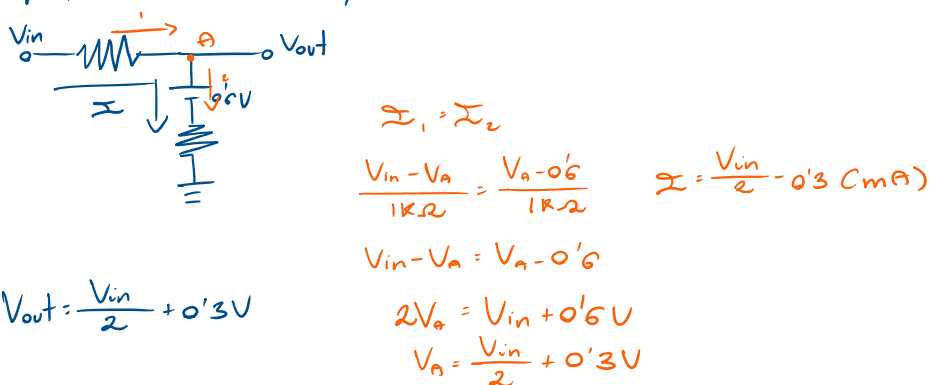 Vin
1
A
Vout
I
2
0'6V
I₁ = I₂
Vin - VA / 1KΩ = VA - 0'6 / 1KΩ
I = Vin / 2 - 0'3 (mA)
Vin - VA = VA - 0'6
2VA = Vin + 0'6 V
VA = Vin / 2 + 0'3 V
Vout = Vin / 2 + 0'3 V